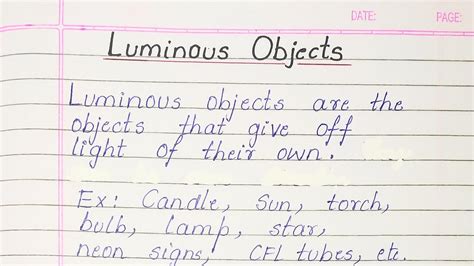 DATE: PAGE:
Luminous Objects
Luminous objects are the
objects that give off
light of their own.
Ex: Candle, Sun, torch,
bulb, lamp, star,
neon signs, CFL tubes, etc.